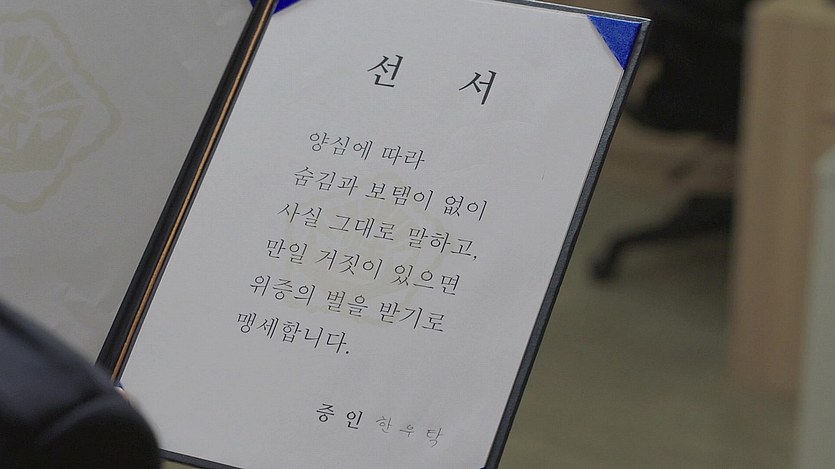 선 서
양심에 따라
숨김과 보탬이 없이
사실 그대로 말하고,
만일 거짓이 있으면
위증의 벌을 받기로
맹세합니다.
증 인 한 우 탁